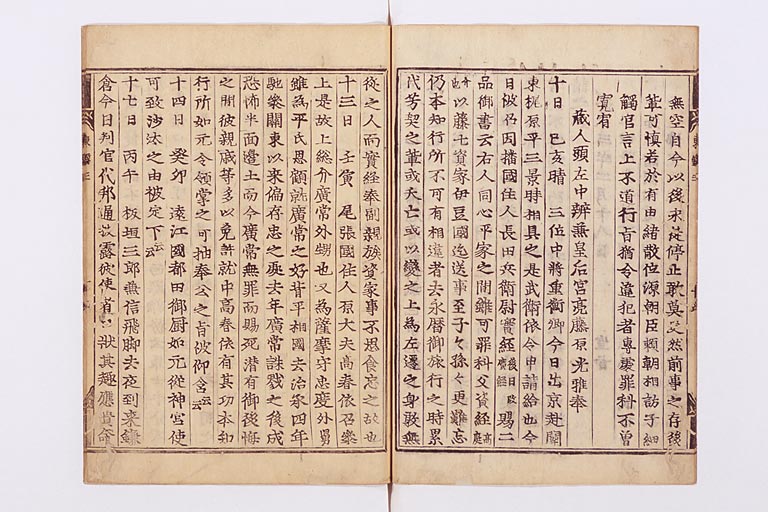 無空自今以後永従停止敢莫又然前事之存後
輩可慎若於有由緒散位源朝臣頼朝相訪子細
觸官言上不道行旨猶令違犯者専處罪科不曾
寛宥
蔵人頭左中辨兼皇后宮亮藤原光雅奉
十日　己亥晴　三位中将重衡卿今日出京赴關
東梶原平三景時相具之是武衛依令申請給也今
日彼仍因播國住人長田兵衛尉實經後日改廣經賜二
品御書云右人同心平家之間雖可罪科父資經高庭
介也以藤七資家伊豆國迄送事至子々孫々更難忘
仍本知行所不可有相違者去永暦御旅行之時累
代芳契之輩或夭亡或以變之上為左遷之身敢無
從之人而實經奉副親族資家事不思食忘之故也
十三日　壬寅　尾張國住人原大夫高春依召參
上是故上総介廣常外甥也又為薩摩守忠度外舅
雖為平氏恩顧就廣常之好背平相國去治承四年
馳參關東以来偏存忠之處去年廣常誅戮之後成
恐怖半面邊土而今廣常無罪而賜死潜有御後悔
之間彼親戚等多以免許就中高春依有其功本知
行所如元令領掌之可抽奉公之旨被仰含云云
十四日　癸卯　遠江國都田御厨如元從神宮使
可致沙汰之由被定下云云
十七日　丙午　板垣三郎兼信飛脚去夜到来鎌
倉今日判官代邦通披露彼使者口状其趣應貴命